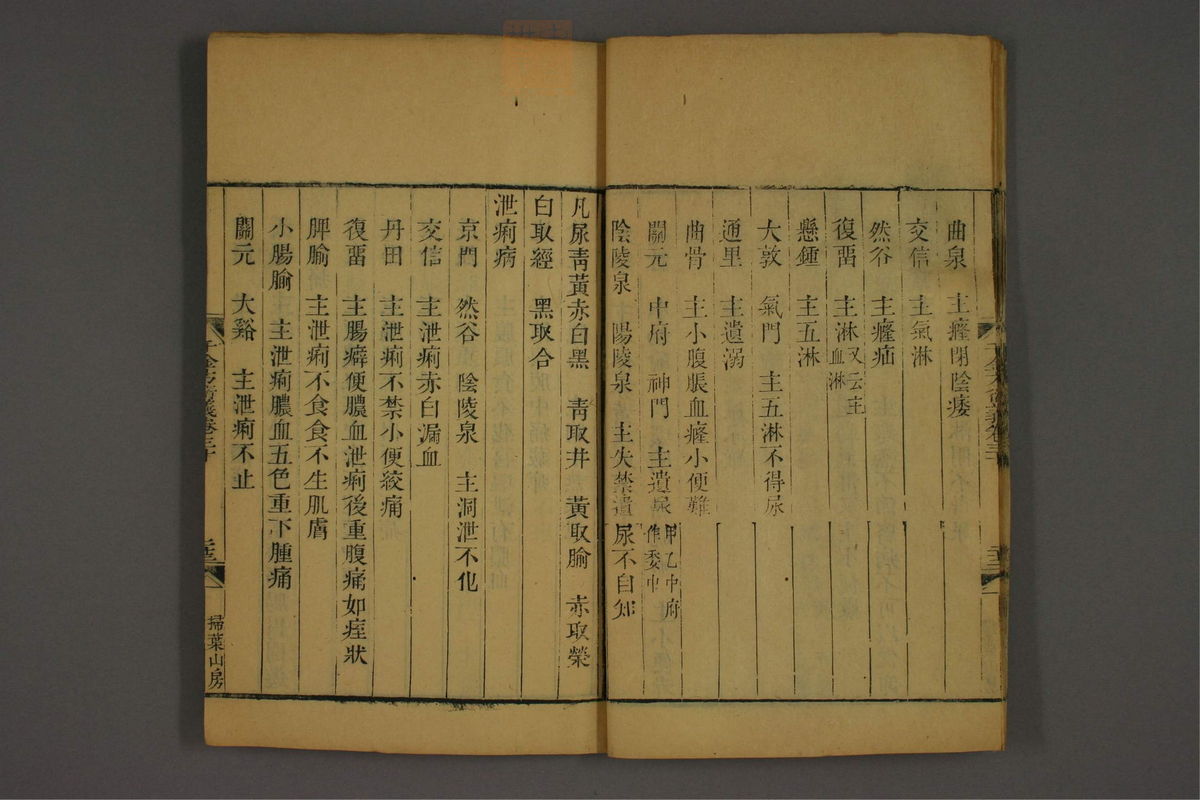 曲泉　主癃閉陰痿
交信　主氣淋
然谷　主癃疝
復畱　主淋又云主血淋
懸鍾　主五淋
大敦　氣門　主五淋不得尿
通里　主遺溺
曲骨　主小腹脹血癃小便難
關元　中府　神門　主遺尿甲乙中府作委中
陰陵泉　陽陵泉　主失禁遺尿不自知
凡尿青黃赤白黑　青取井　黃取腧　赤取榮
白取經　黑取合
泄痢病
京門　然谷　陰陵泉　主洞泄不化
交信　主泄痢赤白漏血
丹田　主泄痢不禁小便絞痛
復畱　主腸癖便膿血泄痢後重腹痛如痓狀
脾腧　主泄痢不食食不生肌膚
小腸腧　主泄痢膿血五色重下腫痛
關元　大谿　主泄痢不止
掃葉山房